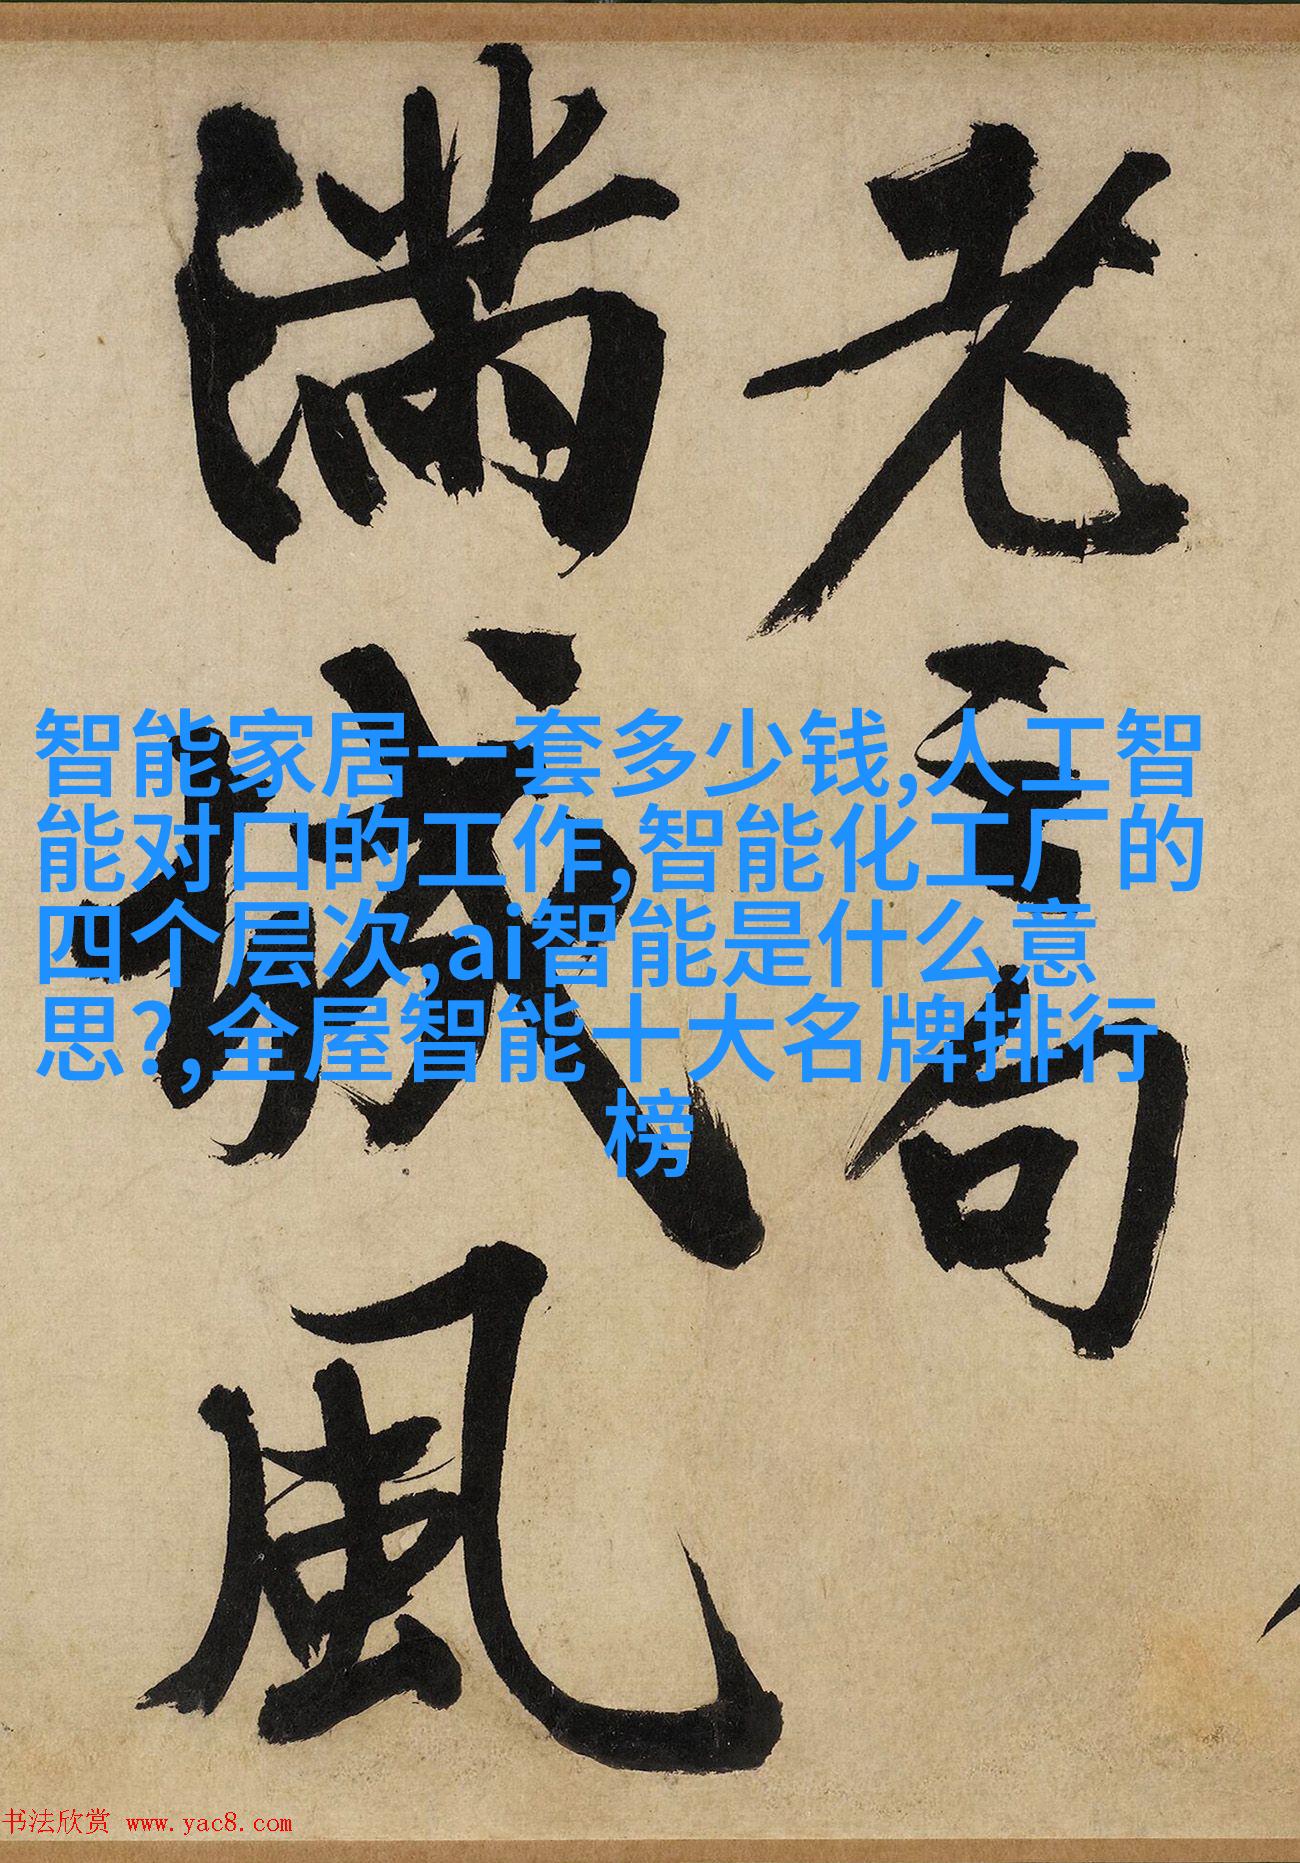 老三句
满城風
智能家居一套多少钱,人工智
能对口的工作,智能化工厂的
四个层次,ai智能是什么意
思?,全屋智能十大名牌排行
榜
书法欣赏 www.yac8.com